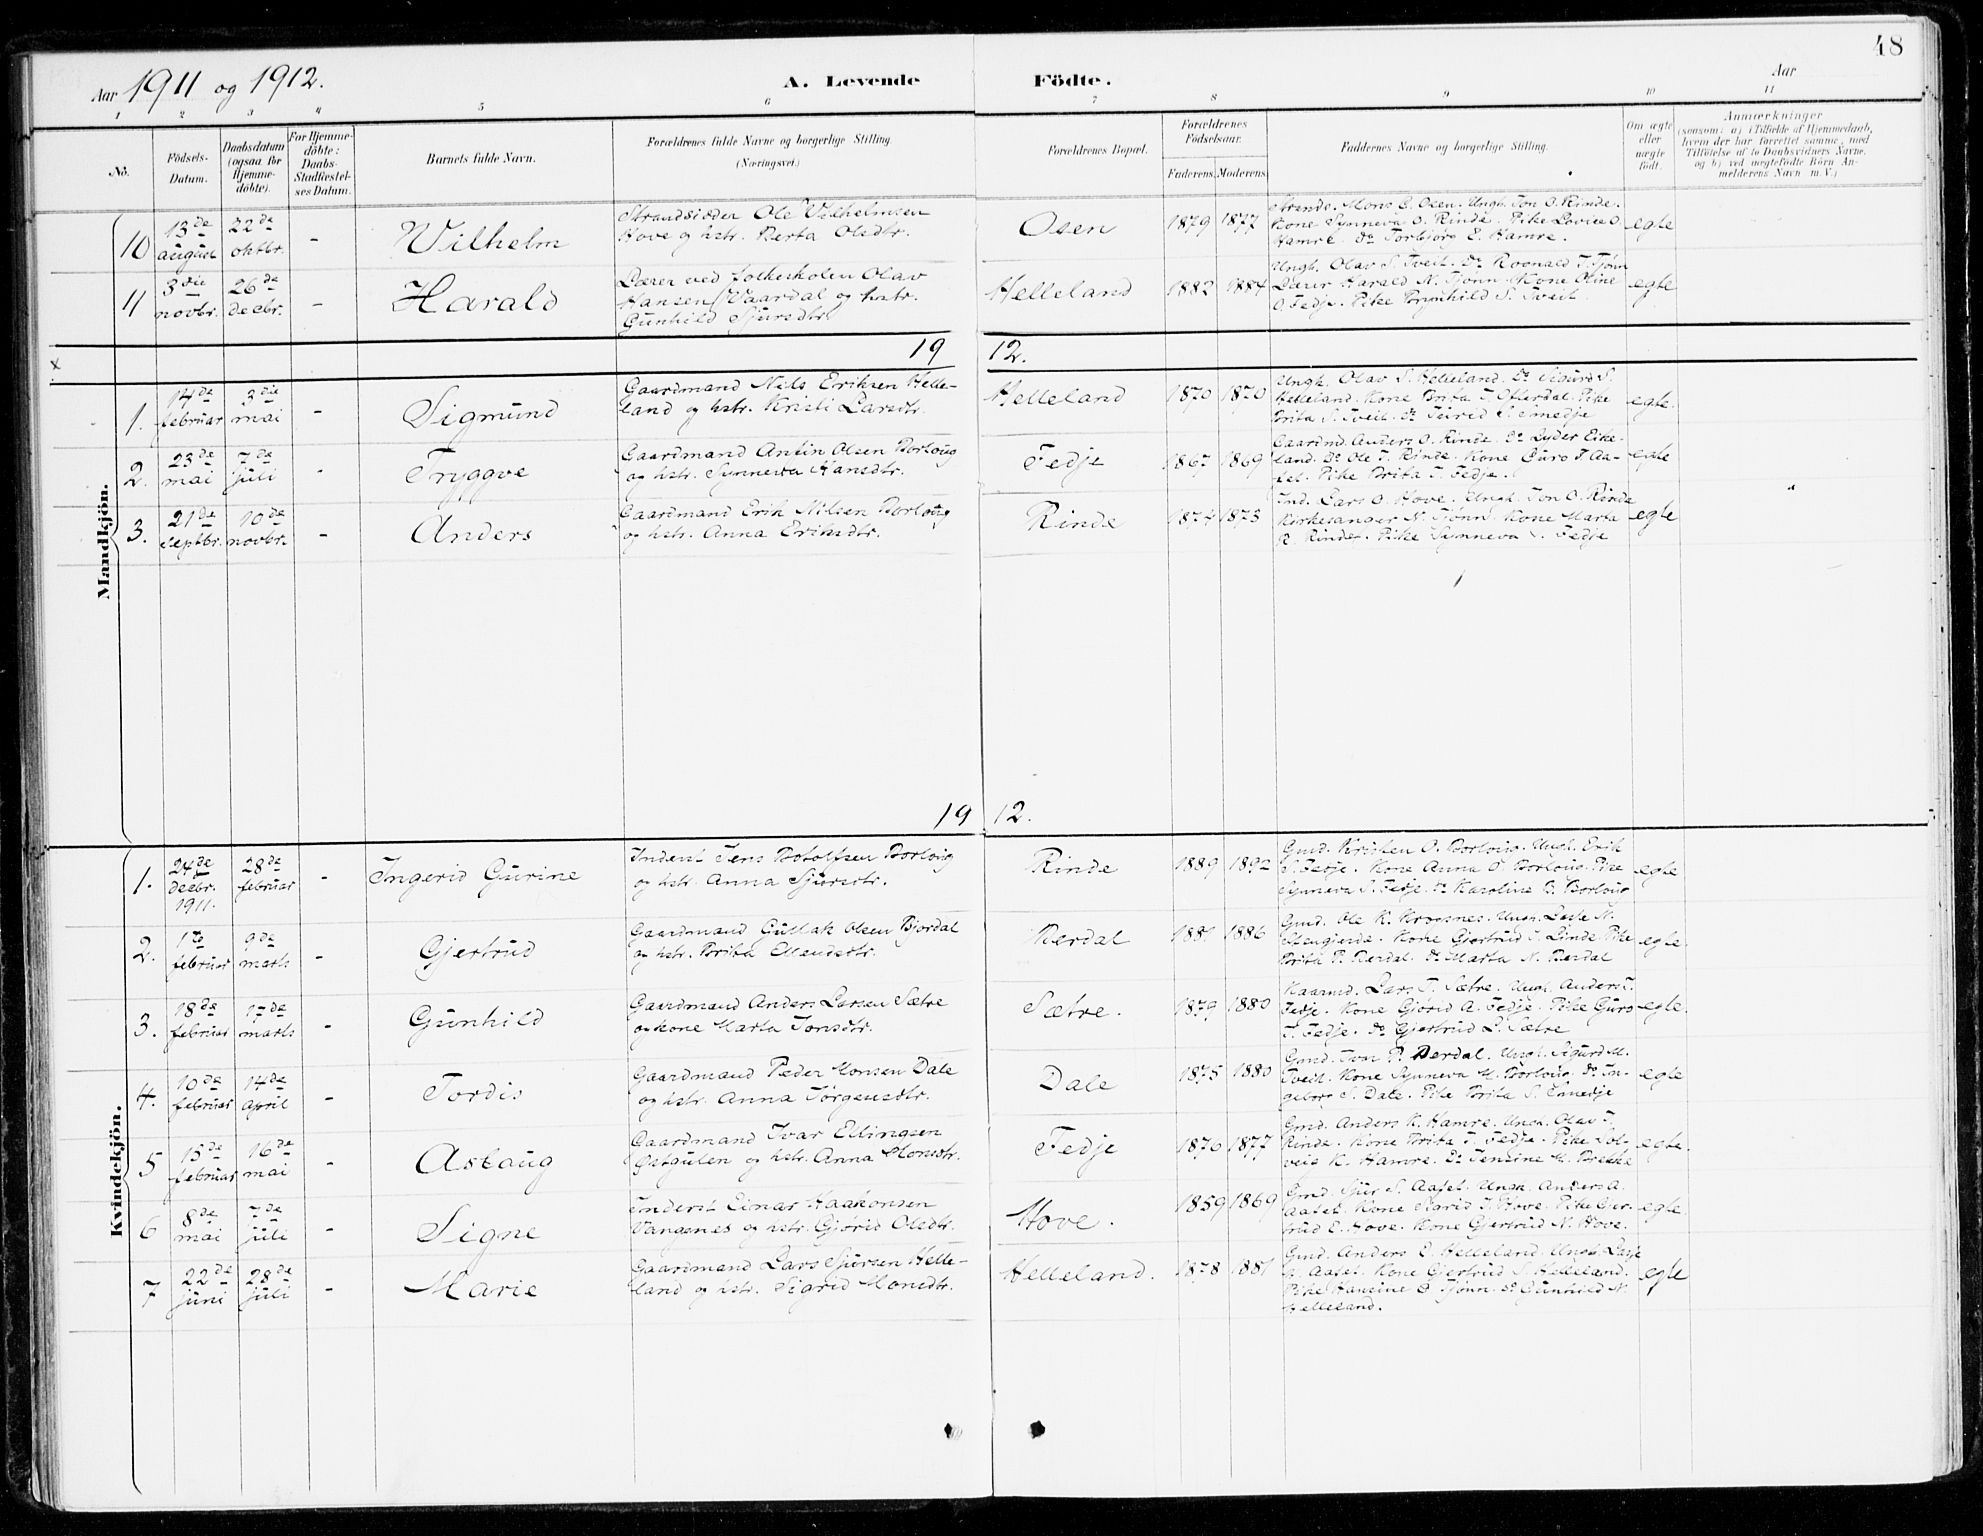 48
Aar 1911 og 1912. A. Levende Födte. Aar
1 2 3 4 5 6 7 8 9 10 11
No.
Födsels-Datum.
Daabsdatum (ogsaa for Hjemme-döbte).
For Hjemme-döbte: Daabs-Stadfæstel-ses Datum.
Barnets fulde Navn.
Forældrenes fulde Navne og borgerlige Stilling (Næringsvei.)
Forældrenes Bopæl.
Forældrenes Födselsaar.
Faderens. Moderens.
Faddernes Navne og borgerlige Stilling.
Om ægte eller uægte födt.
Anmærkninger
(saasom: a) i Tilfælde af Hjemmedaab,
hvem der har forrettet samme, med
Tilföielse af to Daabsvidners Navne.
og b) ved uægtefödte Börn An-
melderens Navn m. V.)
Mandkjön.
10 13de august 22de oktbr. - Vilhelm
Strandsidder Ole Vilhelmsen
Hove og hstr. Berta Olsdtr.
Osen 1879 1877
Strands. Mons E. Osen. Ungk. Jon O. Rinde.
Kone Synneva O. Rinde. Pike Lovise O.
Hamre. Do Torbjørg E. Hamre.
egte
11 3die novbr. 26de decbr. - Harald
Lærer ved folkeskolen Olav
Hansen Vaardal og hstr.
Gunhild Sjursdtr.
Helleland 1882 1884
Ungk. Olav S. Tveit. Do Roonald T. Tjønn
Lærer Harald N. Tjønn. Kone Oline
O. Fedje. Pike Brynhild S. Tveit.
egte
19 12.
x
1. 14de februar 3die mai - Sigmund
Gaardmand Nils Eriksen Helle-
land og hstr. Kristi Larsdtr.
Helleland 1870 1870
Ungk. Olav S. Helleland. Do Sigurd S.
Helleland. Kone Brita T. Ofterdal. Pike
Brita S. Tveit. Do
egte.
2. 23de mai 7de juli - Tryggve
Gaardmand Antin Olsen Borlaug
og hstr. Synneva Hansdtr.
Fedje 1867 1869
Gaardmd. Anders O. Rinde. Do Lyder Eike-
land. Do Ole T. Rinde. Kone Guro T. Aa-
fet. Pike Brita T. Fedje.
egte
3. 21de septbr. 10de novbr. - Anders
Gaardmand Erik Nilsen Borlaug
og hstr. Anna Eriksdtr.
Rinde 1874 1873
Ind. Lars O. Hove. Ungk. Jon O. Rinde
Kirkesanger N. Tjønn. Kone Marta
R. Rinde. Pike Synneva S. Fedje
egte
19 12.
Kvindekjön.
1. 24de decbr. 1911. 28de februar - Ingerid Gurine
Inderst Jens Botolfsen Borlaug
og hstr. Anna Sjursdtr.
Rinde 1889 1892
Gmd. Kristen O. Borlaug. Ungk. Erik
S. Fedje. Kone Anna O. Borlaug. Pike
Synneva S. Fedje. Do Karoline B. Borlaug
egte
2. 1ste februar 9de marts - Gjertrud
Gaardmand Gullak Olsen Bjordal
og hstr. Brita Ellendsdtr.
Rerdal 1881 1886
Gmd. Ole K. Ungk. Lasse N.
Kone Gjertrud J. Linde. Pike
Brita P. Rerdal. Do Marta N. Rerdal
egte.
3. 18de februar 17de marts - Gunhild
Gaardmand Anders Larsen Sætre
og kone Marta Jonsdtr.
Sætre. 1879 1880
Kaarmd. Lars T. Sætre. Ungk. Anders T.
Fedje. Kone Gjørid A. Fedje. Pike Guro
T. Fedje. Do Gjertrud L. Sætre
egte.
4. 10de februar 14de april - Tordis
Gaardmand Peder Monsen Dale
og hstr. Anna Jørgensdtr.
Dale 1875 1880
Gmd. Ivar P. Rerdal. Ungk. Sigurd M.
Tveit. Kone Synneva M. Borlaug. Do In-
geborg S. Dale. Pike Brita S. Ennedje
egte
5 15de februar 16de mai - Aslaug
Gaardmand Ivar Ellingsen
Østgulen og hstr. Anna Monsdtr.
Fedje 1870 1877
Gmd. Anders K. Hamre. Ungk. Olav T.
Rinde. Kone Brita T. Fedje. Pike Sol-
veig K. Hamre. Do Jensine M. Brekke
egte.
6 8de mai 7de juli - Signe
Inderst Einar Haakonsen
Vangsnes og hstr. Gjørid Olsdtr.
Hove. 1859 1869
Gmd. Sjur S. Aafet. Ungk. Anders A.
Aafet. Kone Sigrid J. Hove. Pike Gjer-
trud E. Hove. Kone Gjertrud N. Hove.
egte.
7 22de juni 28de juli - Marie
Gaardmand Lars Sjursen Helle-
land og hstr. Sigrid Monsdtr.
Helleland. 1878 1881
Gmd. Anders E. Helleland. Ungk. Lasse
N. Aafet. Kone Gjertrud S. Helleland.
Pike Hansine O. Tjønn. Do Gunhild N.
Helleland.
egte